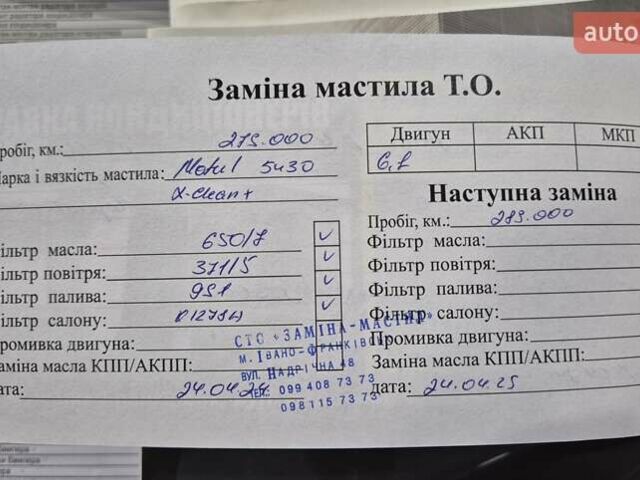 auto
Заміна мастила Т.О.
Пробіг, км.: 279.000
Марка і вязкість мастила: Motul 5w30
X-clean+
Фільтр масла: 650/7
Фільтр повітря: 371/5
Фільтр палива: 951
Фільтр салону:
Промивка двигуна:
Заміна масла КПП/АКПП:
дата: 24.04.24
Двигун АКП МКП
6,2
Наступна заміна
Пробіг, км.: 289.000
Фільтр масла:
Фільтр повітря:
Фільтр палива:
Фільтр салону:
Промивка двигуна:
Заміна масла КПП/АКПП:
дата: 24.04.25
СТО «ЗАМІНА-МАСТИЛ»
м. Івано-Франківськ
вул. Надрічна 48
тел.: 099 408 73 73
098 115 73 73